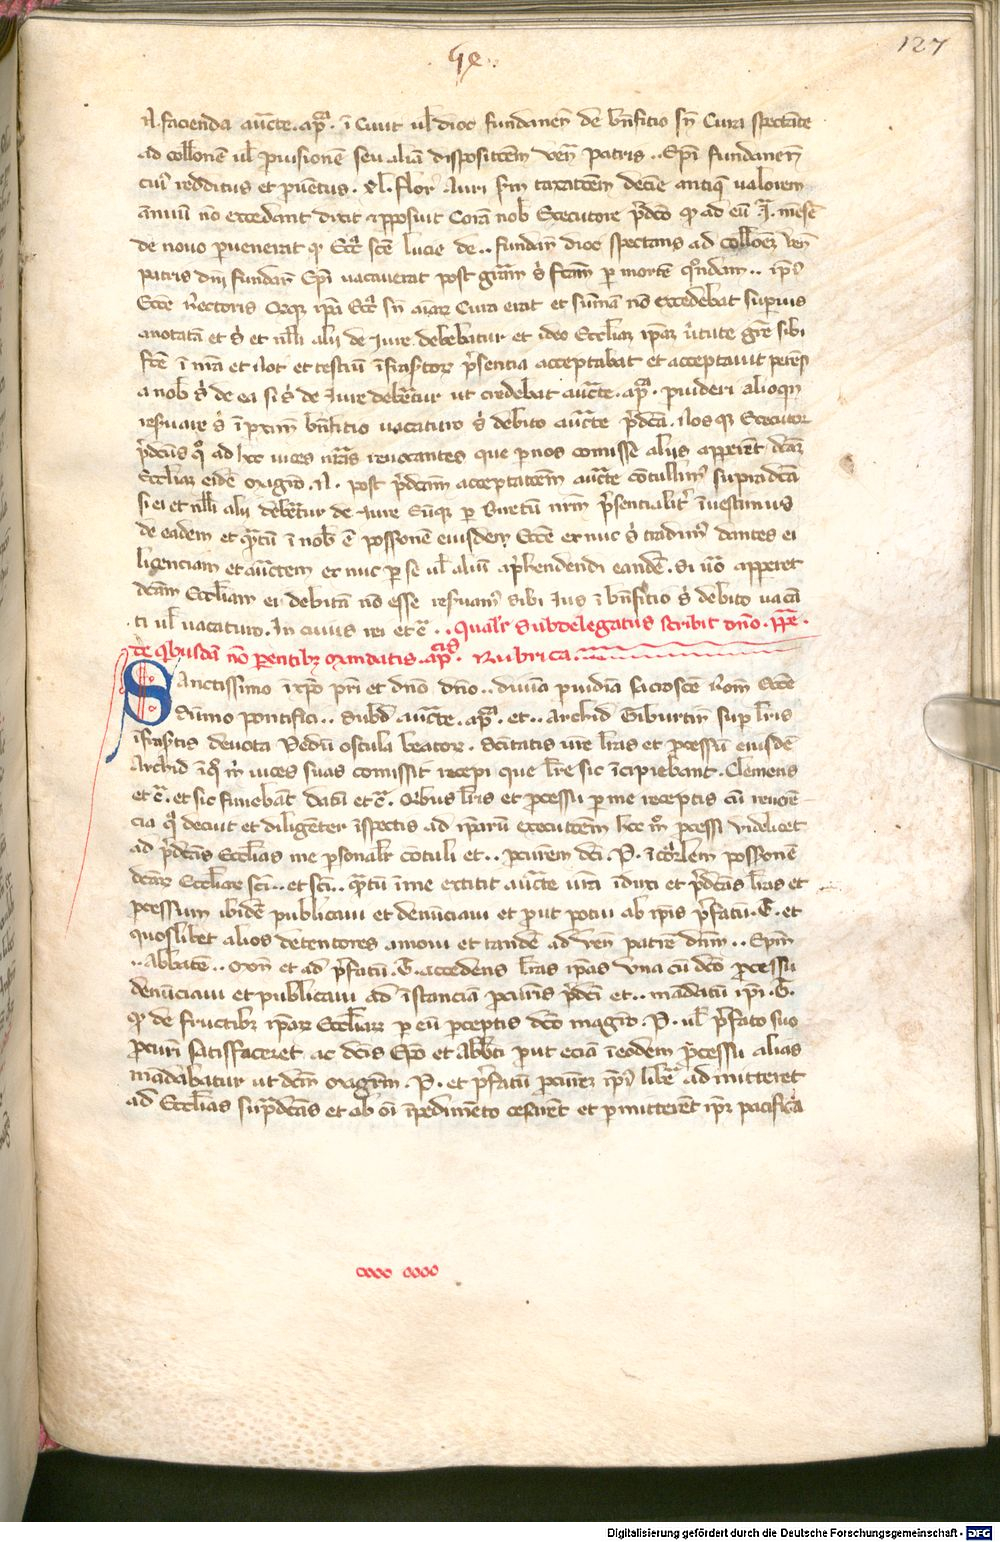 127
N. facienda aucte. apca. i Civit ul dioc fundanen de bnficio sn Cura spectante
ad collonem ul provisione seu alia dispositoem ven patris .. Epi fundanen
cui redditus et pventus . xl. flor Auri scm taxatoem decie antiq valorem
annuu no excedant dixit et pposuit Cora nob Executore pdco qd ad eu A. mese
de novo pervenerat qd Ecca sce lucie de .. fundan dioc spectans ad colloem ven
patris dni fundan Epi vacaverat post gram s fcam per morte quondam .. ipi
Ecce Rectoris Atque ipa Ecca sn aiar Cura erat et suma no excedebat superius
anotata et s et nlli alii de Iure debebatur et ideo Eccliam ipam virtute gre sibi
fce i mea et not et testiu ifrasptor psentia acceptabat et acceptavit petens
a nob s de ea si s de Iure debetur ut credebat aucte. apca. provideri alioqn
reservare s i pxim bnficio vacaturo s debito aucte pdca. Nos qz Executor
pdcus qo ad hec vices nras revocantes que per nos comisse aliis apperent dcam
Eccliam eide magro. N. post pdcam acceptatoem aucte contulim supradca
si ei et nlli alii debetur de Iure Eumqz per Biretu nrm psentialit investimus
de eadem et quatu i nob e possone eiusdem Ecce ex nuc s tradim dantes ei
licenciam et auctem ex nuc per se ul aliu aprehendendi eande. Si vo apperet
dcam Eccliam ei debita no esse reservam sibi Ius i bnficio s debito vaca
ti ul vacaturo. In cuius rei et c. .. Qualr Subdelegatus scribit dno. ppe.
de qbusda no parentibz mandatis. apcis. Rubrica
Sanctissimo i xpo pri et dno dno .. divina pvidia sacrosce Rom Ecce
Sumo pontifici .. Subd aucte. apca. et .. Archid Tiburtin sup lris
ifrasptis devota pedu oscula beator. Scitatis vre lras et pcessu eiusde
Archid i qo m vices suas comissit recepi que lre sic icipiebant. Clemens
et c. et sic finiebat datu et c. Quibus lris et pcessu per me receptis cu reveren
cia qo decuit et diligeter ispectis ad iparu executoem hoc mo pcessi videlicet
ad pdcas Ecclias me personalr contuli et .. pcurem dci. P. i corlem possone
dcar Eccliar sci .. et sci .. quatu i me extitit aucte vra iduxi et pdcas lras et
pcessum ibide publicavi et denuciavi et prout potui ab ipis pfatu. G. et
quoslibet alios detentores amovi et tande ad ven patre dnm .. Epm
.. Abbate .. mon et ad pfatu. G. accedens lras ipas una cu dco pcessu
denuciavi et publicavi ad istancia pcuris pdci et .. madatu ipi. G.
qd de fructibz ipar Eccliar per eu perceptis dco magro. P. ul pfato suo
pcuri satisfaceret ac dcis Epo et Abbti prout ecia i eodem pcessu alias
madabatur ut dcm magrm. P. et pfatu pcurem ipi libe admitteret
ad Ecclias supradcas et ab oi ipedimeto cesseret et permitteret ipm pacifica
Digitalisierung gefördert durch die Deutsche Forschungsgemeinschaft - DFG